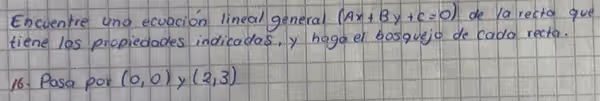 Encuentre una ecuación lineal general (Ax + By + C = 0) de la recta que
tiene las propiedades indicadas, y haga el bosquejo de cada recta.
16. Pasa por (0,0) y (2,3)